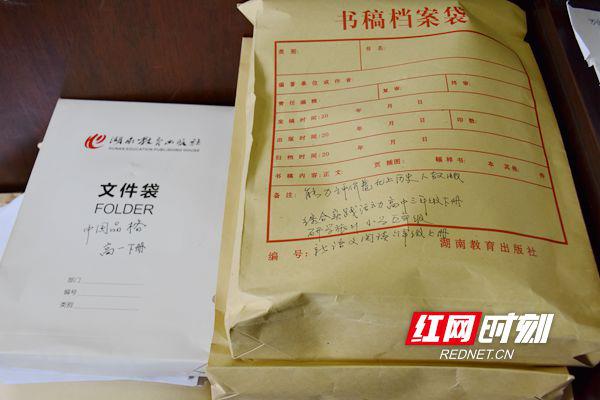 湖南教育出版社
HUNAN EDUCATION PUBLISHING HOUSE
文件袋
FOLDER
中国品格
高一下册
部门
编号
类别
书稿档案袋
类别: 书名:
编著单位或作者:
责任编辑: 复审: 终审:
发稿时间:20 年 月 日
出版时间:20 年 月 日 印数:
归档时间:20 年 月 日
书稿内容:正文 页 插图: 幅 样书: 本 其他: 件
备注:
综合实践活动 高中三年级下册
研学旅行 小学五年级
新语文阅读 六年级上册
编号: 湖南教育出版社
红网时刻
REDNET.CN